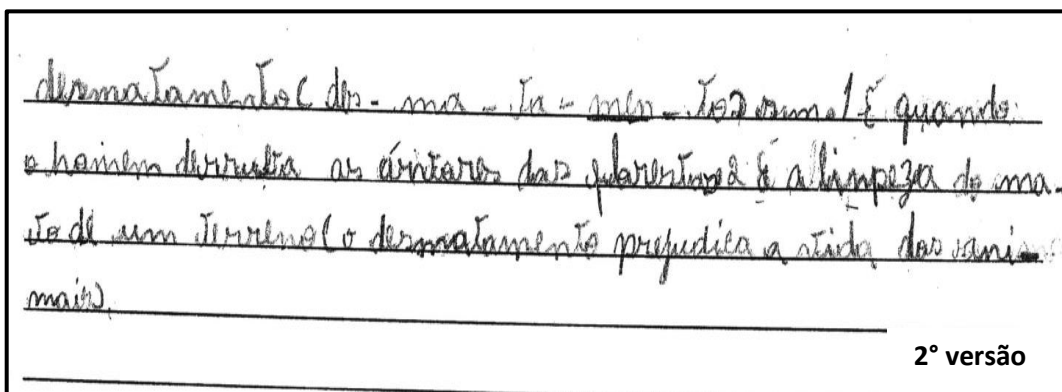 desmatamento (des - ma - ta - men - to) sm. 1 É quando
o homem derruba as árvores das florestas 2 É a limpeza do ma-
to de um terreno (o desmatamento prejudica a vida dos ani-
mais).
2° versão